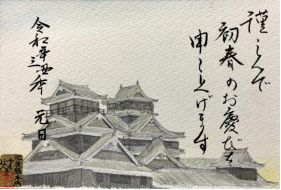 謹んで
初春のお慶びを
申し上げます
令和三年 元日